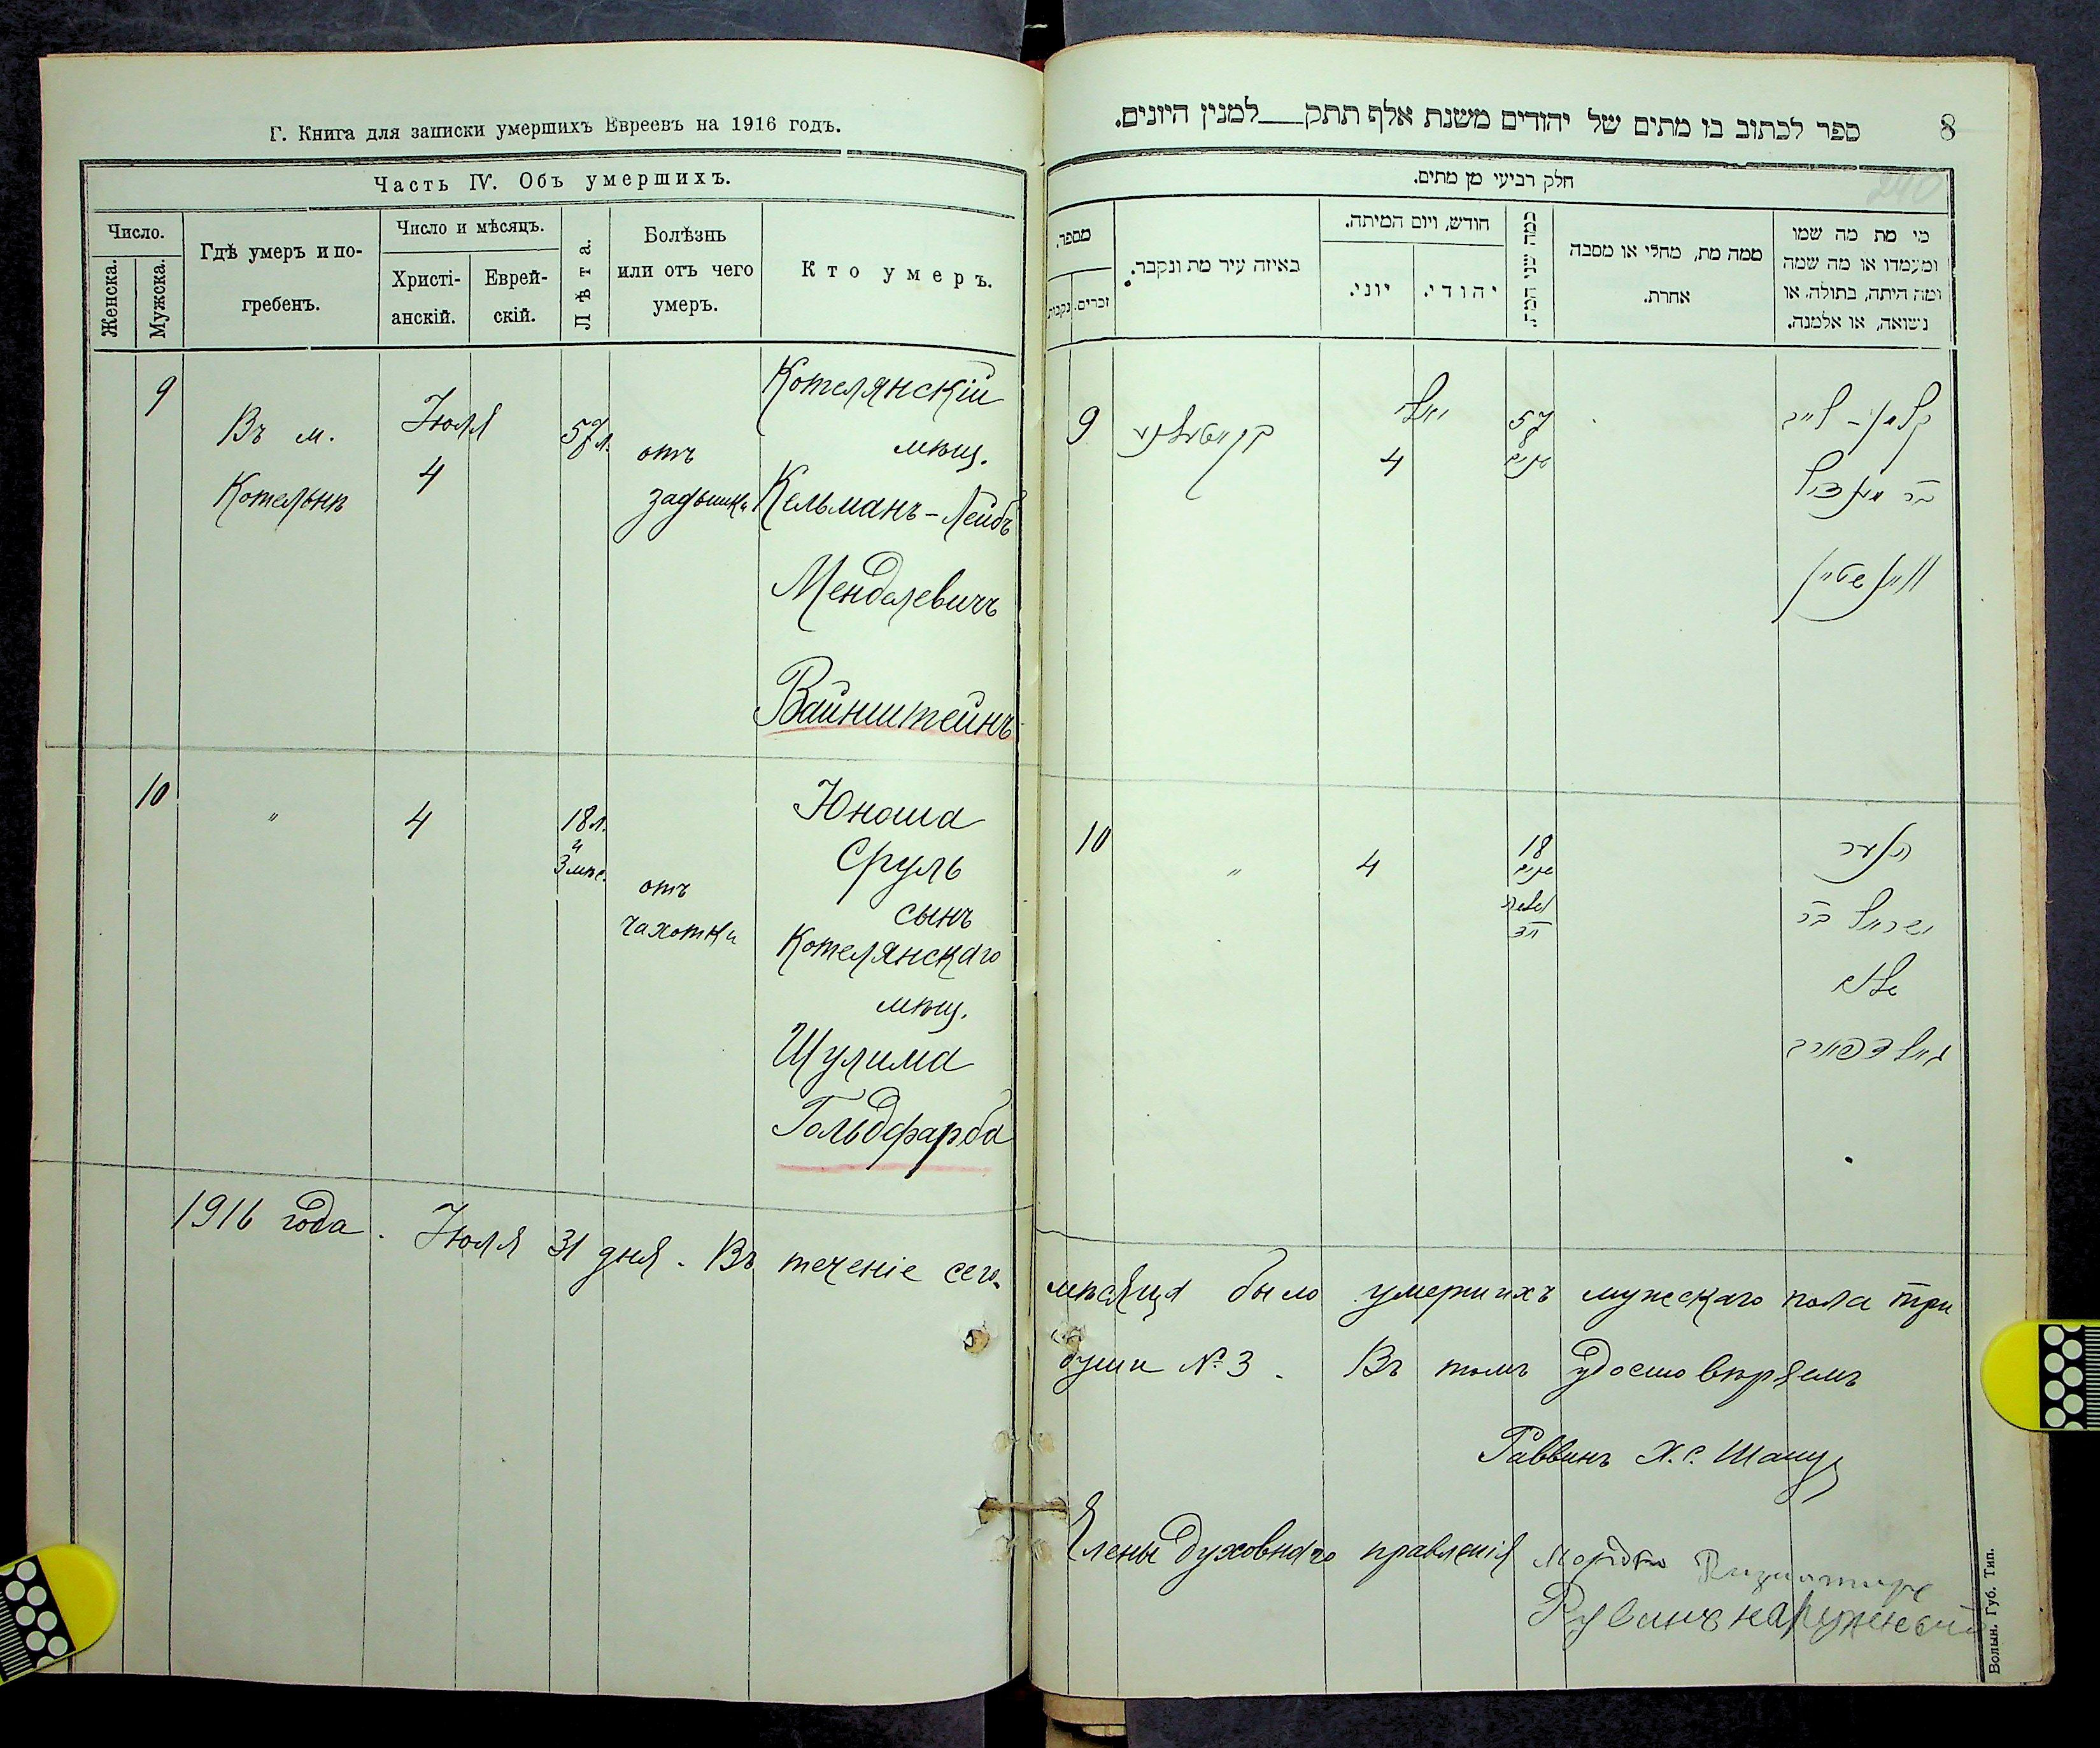 Г. Книга для записки умершихъ Евреевъ на 1916 годъ.
Часть IV. Объ умершихъ.
Число.
Женска.
Мужска.
Гдѣ умеръ и по-
гребенъ.
Число и мѣсяцъ.
Христі-
анскій.
Еврей-
скій.
Лѣта.
Болѣзнь
или отъ чего
умеръ.
Кто умеръ.
9
Въ м.
Котельнѣ
Іюля
4
57 л.
отъ
задышки
Котелянскій
мѣщ.
Кельманъ-Лейбъ
Менделевичъ
Вайнштейнъ
10
"
4
18 л.
и
3 мѣс.
отъ
чахотки
Юноша
Сруль
сынъ
Котелянскаго
мѣщ.
Шулима
Гольдфарба
1916 года. Іюля 31 дня. Въ теченіе сего
8
ספר לכתוב בו מתים של יהודים משנת אלף תתק___למנין היונים.
חלק רביעי מן מתים.
מי מת מה שמו
ומעמדו או מה שמה
ומה היתה, בתולה, או
נשואה, או אלמנה.
ממה מת, מחלי או מסבה
אחרת.
כמה שני המת.
חודש, ויום המיתה.
יהודי.
יוני.
באיזה עיר מת ונקבר.
מספר.
זכרים.
נקבות
קלמן-לייב
בר מענדיל
וויינשטיין
57
שנים
יולי
4
9
הנער
ישראל בר
שלום
גאלדפארב
18
שנים
4
"
10
мѣсяца было умершихъ мужскаго пола три
души № 3. Въ томъ удостовѣряемъ
Раввинъ Х. С.
Члены духовнаго правленія
Рувинъ
Волын. Губ. Тип.